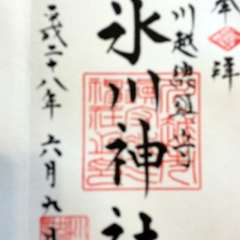 奉拝
川越總鎮守
氷川神社
平成二十八年六月九日